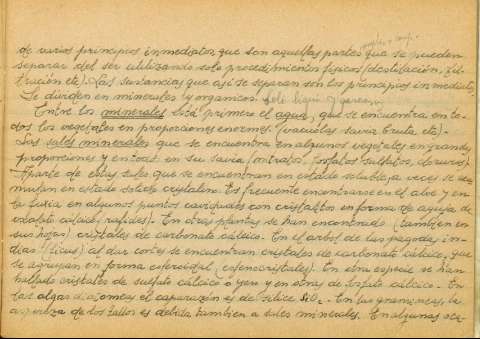 de varios principios inmediatos que son aquellas partes que se pueden
separar del ser utilizando solo procedimientos físicos (destilación, fil-
tración etc). Las sustancias que asi se separan son los principios inmediatos
Se dividen en minerales y organicos.
Entre los minerales está primero el agua, que se encuentra en to-
dos los vegetales en proporciones enormes. (vacuolas savia bruta etc)-
Las sales minerales que se encuentra en algunos vegetales en grandes
proporciones y en todos en su savia (nitratos, fosfatos sulfatos, cloruros).
Aparte de estas sales que se encuentran en estado soluble, a veces se acu-
mulan en estado solido cristalino. Es frecuente encontrarse en el aloe y en
la fuxia en algunos puntos cavidades con cristalitos en forma de aguja de
oxalato cálcico (rafides). En otras plantas se han encontrado (tambien en
sus hojas) cristales de carbonato cálcico. En el arbol de las pagodas in-
dias (ficus) al dar cortes se encuentran cristales de carbonato cálcico, que
se agrupan en forma esferoidal (esferocristales). En otra especie se han
hallado cristales de sulfato cálcico o yeso y en otras de fosfato cálcico. En
las algas diatomeas el caparazón es de silice SiO2. En las gramineas, la
aspereza de los tallos es debida tambien a sales minerales. En algunas oca-